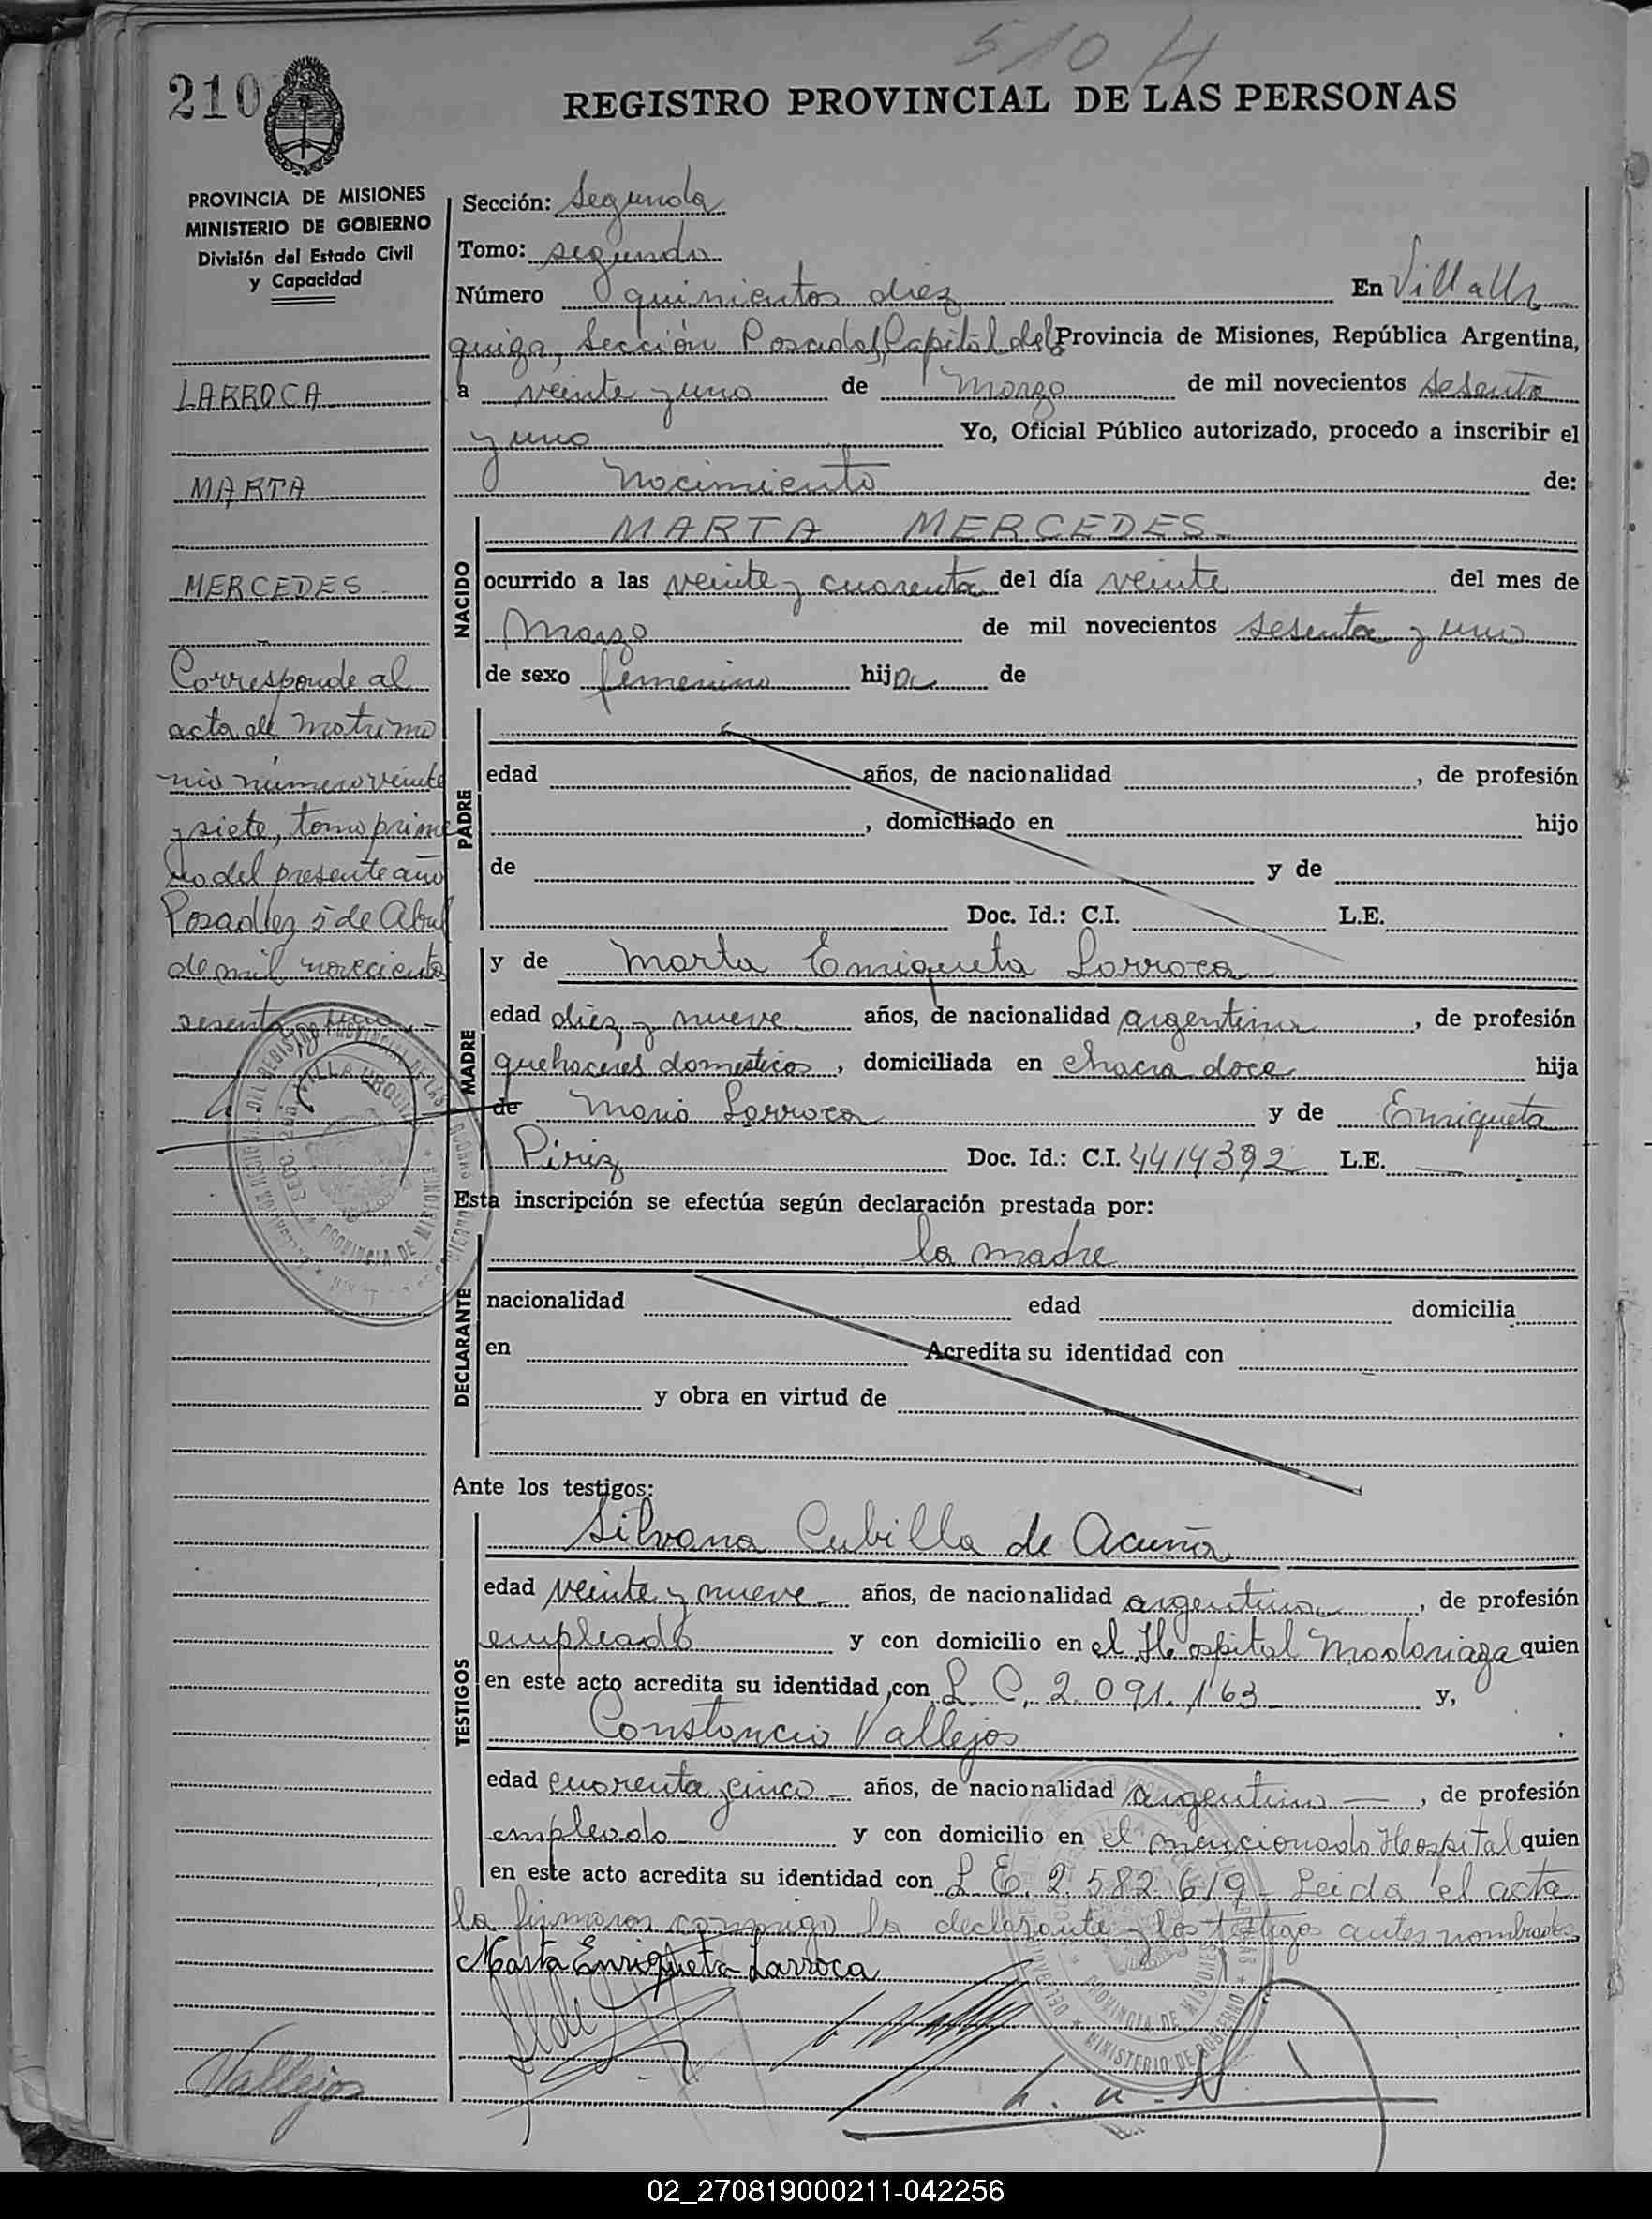 510 H
210
REGISTRO PROVINCIAL DE LAS PERSONAS
PROVINCIA DE MISIONES
MINISTERIO DE GOBIERNO
División del Estado Civil
y Capacidad
LARROCA
MARTA
MERCEDES
Corresponde al
acta de matrimo
nio número veinte
y siete, tomo prime
ro del presente año
Posadas 5 de Abril
de mil novecientos
sesenta y uno
Vallejos
Sección: Segunda
Tomo: segundo
Número quinientos diez En Villa Ur
quiza, Sección Posadas, Capital de la Provincia de Misiones, República Argentina,
a veinte y uno de Marzo de mil novecientos sesenta
y uno Yo, Oficial Público autorizado, procedo a inscribir el
Nacimiento de:
NACIDO
MARTA MERCEDES
ocurrido a las veinte y cuarenta del día veinte del mes de
Marzo de mil novecientos sesenta y uno
de sexo femenino hija de
PADRE
edad años, de nacionalidad , de profesión
, domiciliado en hijo
de y de
Doc. Id.: C.I. L.E.
MADRE
y de Marta Enriqueta Larroca
edad diez y nueve años, de nacionalidad argentina , de profesión
quehaceres domesticos , domiciliada en chacra doce hija
de Mario Larroca y de Enriqueta
Piriz Doc. Id.: C.I. 4414392 L.E. —
Esta inscripción se efectúa según declaración prestada por:
DECLARANTE
la madre
nacionalidad edad domicilia
en Acredita su identidad con
y obra en virtud de
Ante los testigos:
TESTIGOS
Silvana Cubilla de Acuña
edad veinte y nueve años, de nacionalidad argentina , de profesión
empleada y con domicilio en el Hospital Madariaga quien
en este acto acredita su identidad con L. C. 2.091.163 y,
Constancio Vallejos
edad cuarenta y cinco años, de nacionalidad argentino , de profesión
empleado y con domicilio en el mencionado Hospital quien
en este acto acredita su identidad con L E. 2.582.619 - Leida el acta
la firmaron conmigo la declarante y los testigos antes nombrados
Marta Enriqueta Larroca
02_270819000211-042256